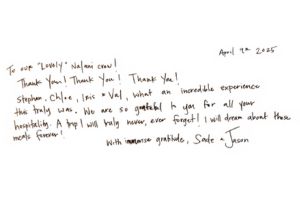 April 9th 2025
To our "Lovely" Nalani crew!
Thank You! Thank You! Thank You!
Stephan, Chloe, Iris & Val, what an incredible experience
this truly was. We are so grateful to you for all your
hospitality. A trip I will truly never, ever forget! I will dream about those
meals forever!
With immense gratitude, Sade & Jason